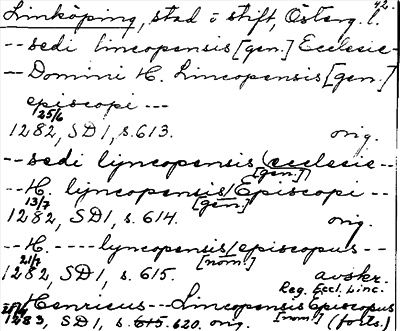 42.
Linköping, stad i stift, Österg. l.
-- sedi lincopensis [gen.] Ecclesie --
-- Domini H. Lincopensis [gen.]
episcopi ---
25/6
1282, SD1, s. 613. orig.
-- sedi lyncopensis (ecclesie --
[gen.]
-- H. lyncopensis/Episcopi --
13/7 [gen.]
1282, SD1, s. 614. orig.
-- H. ---- lyncopensis/episcopus --
21/7 [nom.]
1282, SD1, s. 615. avskr.
Reg. Eccl. Linc.
-- Henricus --- Lincopensis Episcopus
[nom.]
1283, SD1, s. 615. 620. orig. (forts.)